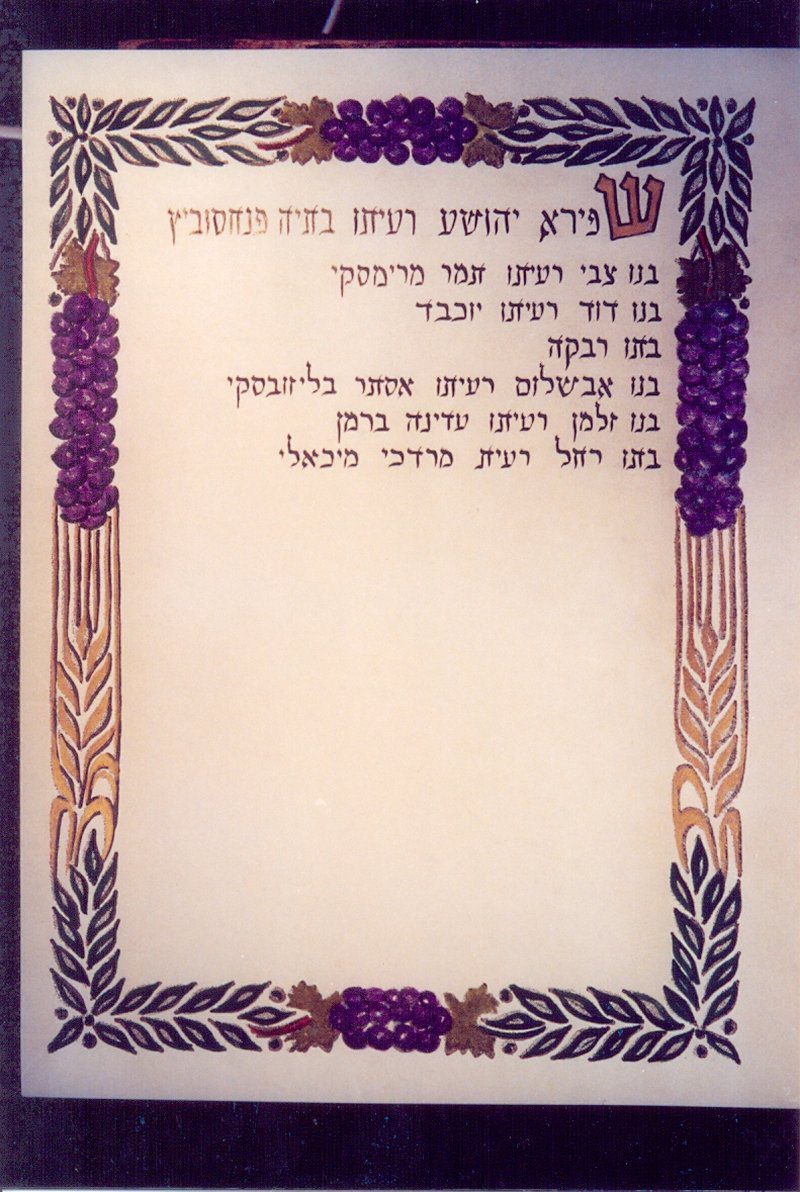 שפירא יהושע רעיתו בתיה פנחסוביץ
בנו צבי רעיתו תמר מרימסקי
בנו דוד רעיתו יוכבד
בתו רבקה
בנו אבשלום רעיתו אסתר בליזובסקי
בנו זלמן רעיתו עדינה ברמן
בתו רחל רעית מרדכי מיכאלי